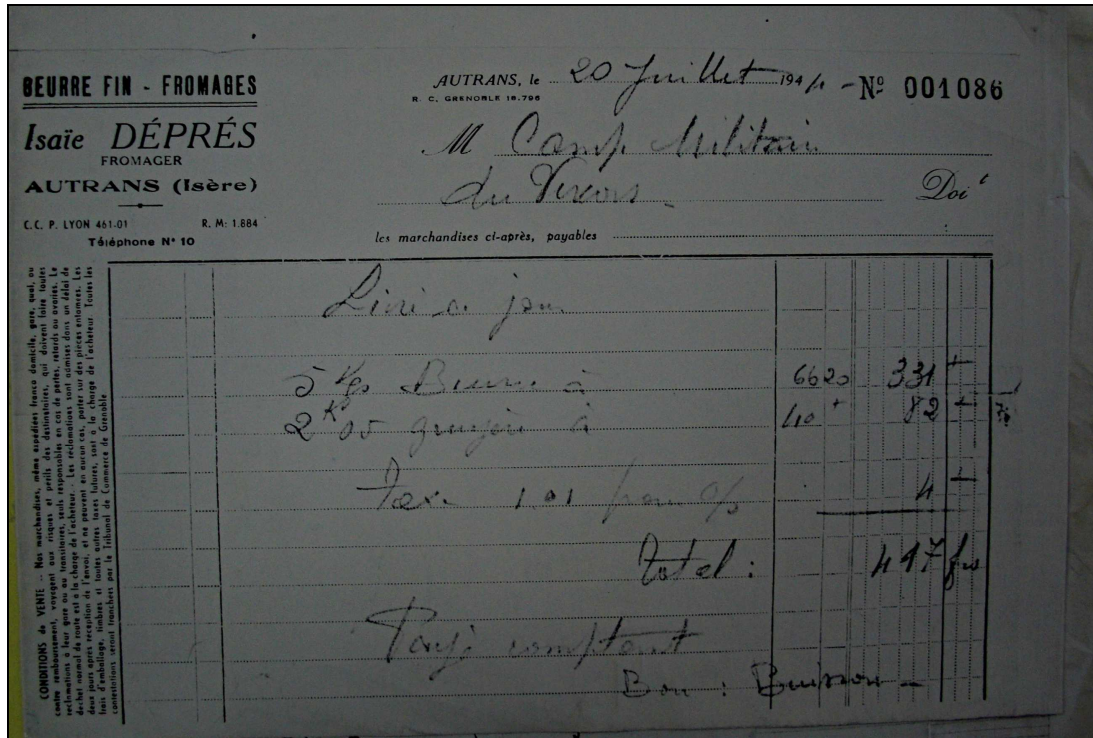 BEURRE FIN - FROMAGES
Isaïe DÉPRÉS
FROMAGER
AUTRANS (Isère)
C.C. P. LYON 461-01 R. M: 1.884
Téléphone N° 10
AUTRANS, le 20 Juillet 1944 - Nº 001086
R. C. GRENOBLE 16.796
M Camp Militaire
du Vercors Doit
les marchandises ci-après, payables
CONDITIONS de VENTE .- Nos marchandises, même expédiées franco domicile, gare, quai, ou
contre remboursement, voyagent aux risques et périls des destinataires, qui doivent faire toutes
réclamations à leur gare ou au transitaires, seuls responsables en cas de pertes, retards ou avaries. Le
déchet normal de route est à la charge de l'acheteur. - Les réclamations sont admises dans un délai de
deux jours après réception de l'envoi, et ne peuvent en aucun cas, porter sur des pièces entamées. Les
frais d'emballage, timbres et toutes autres taxes futures, sont à la charge de l'acheteur. Toutes les
contestations seront tranchées par le Tribunal de Commerce de Grenoble
Livré ce jour
5 Kgs Beurre à 6620 331
2 K° 05 gruyère à 40 82
Taxe 1.01 pour % 4
total : 417 frs
Payé comptant
Bon : Buisson